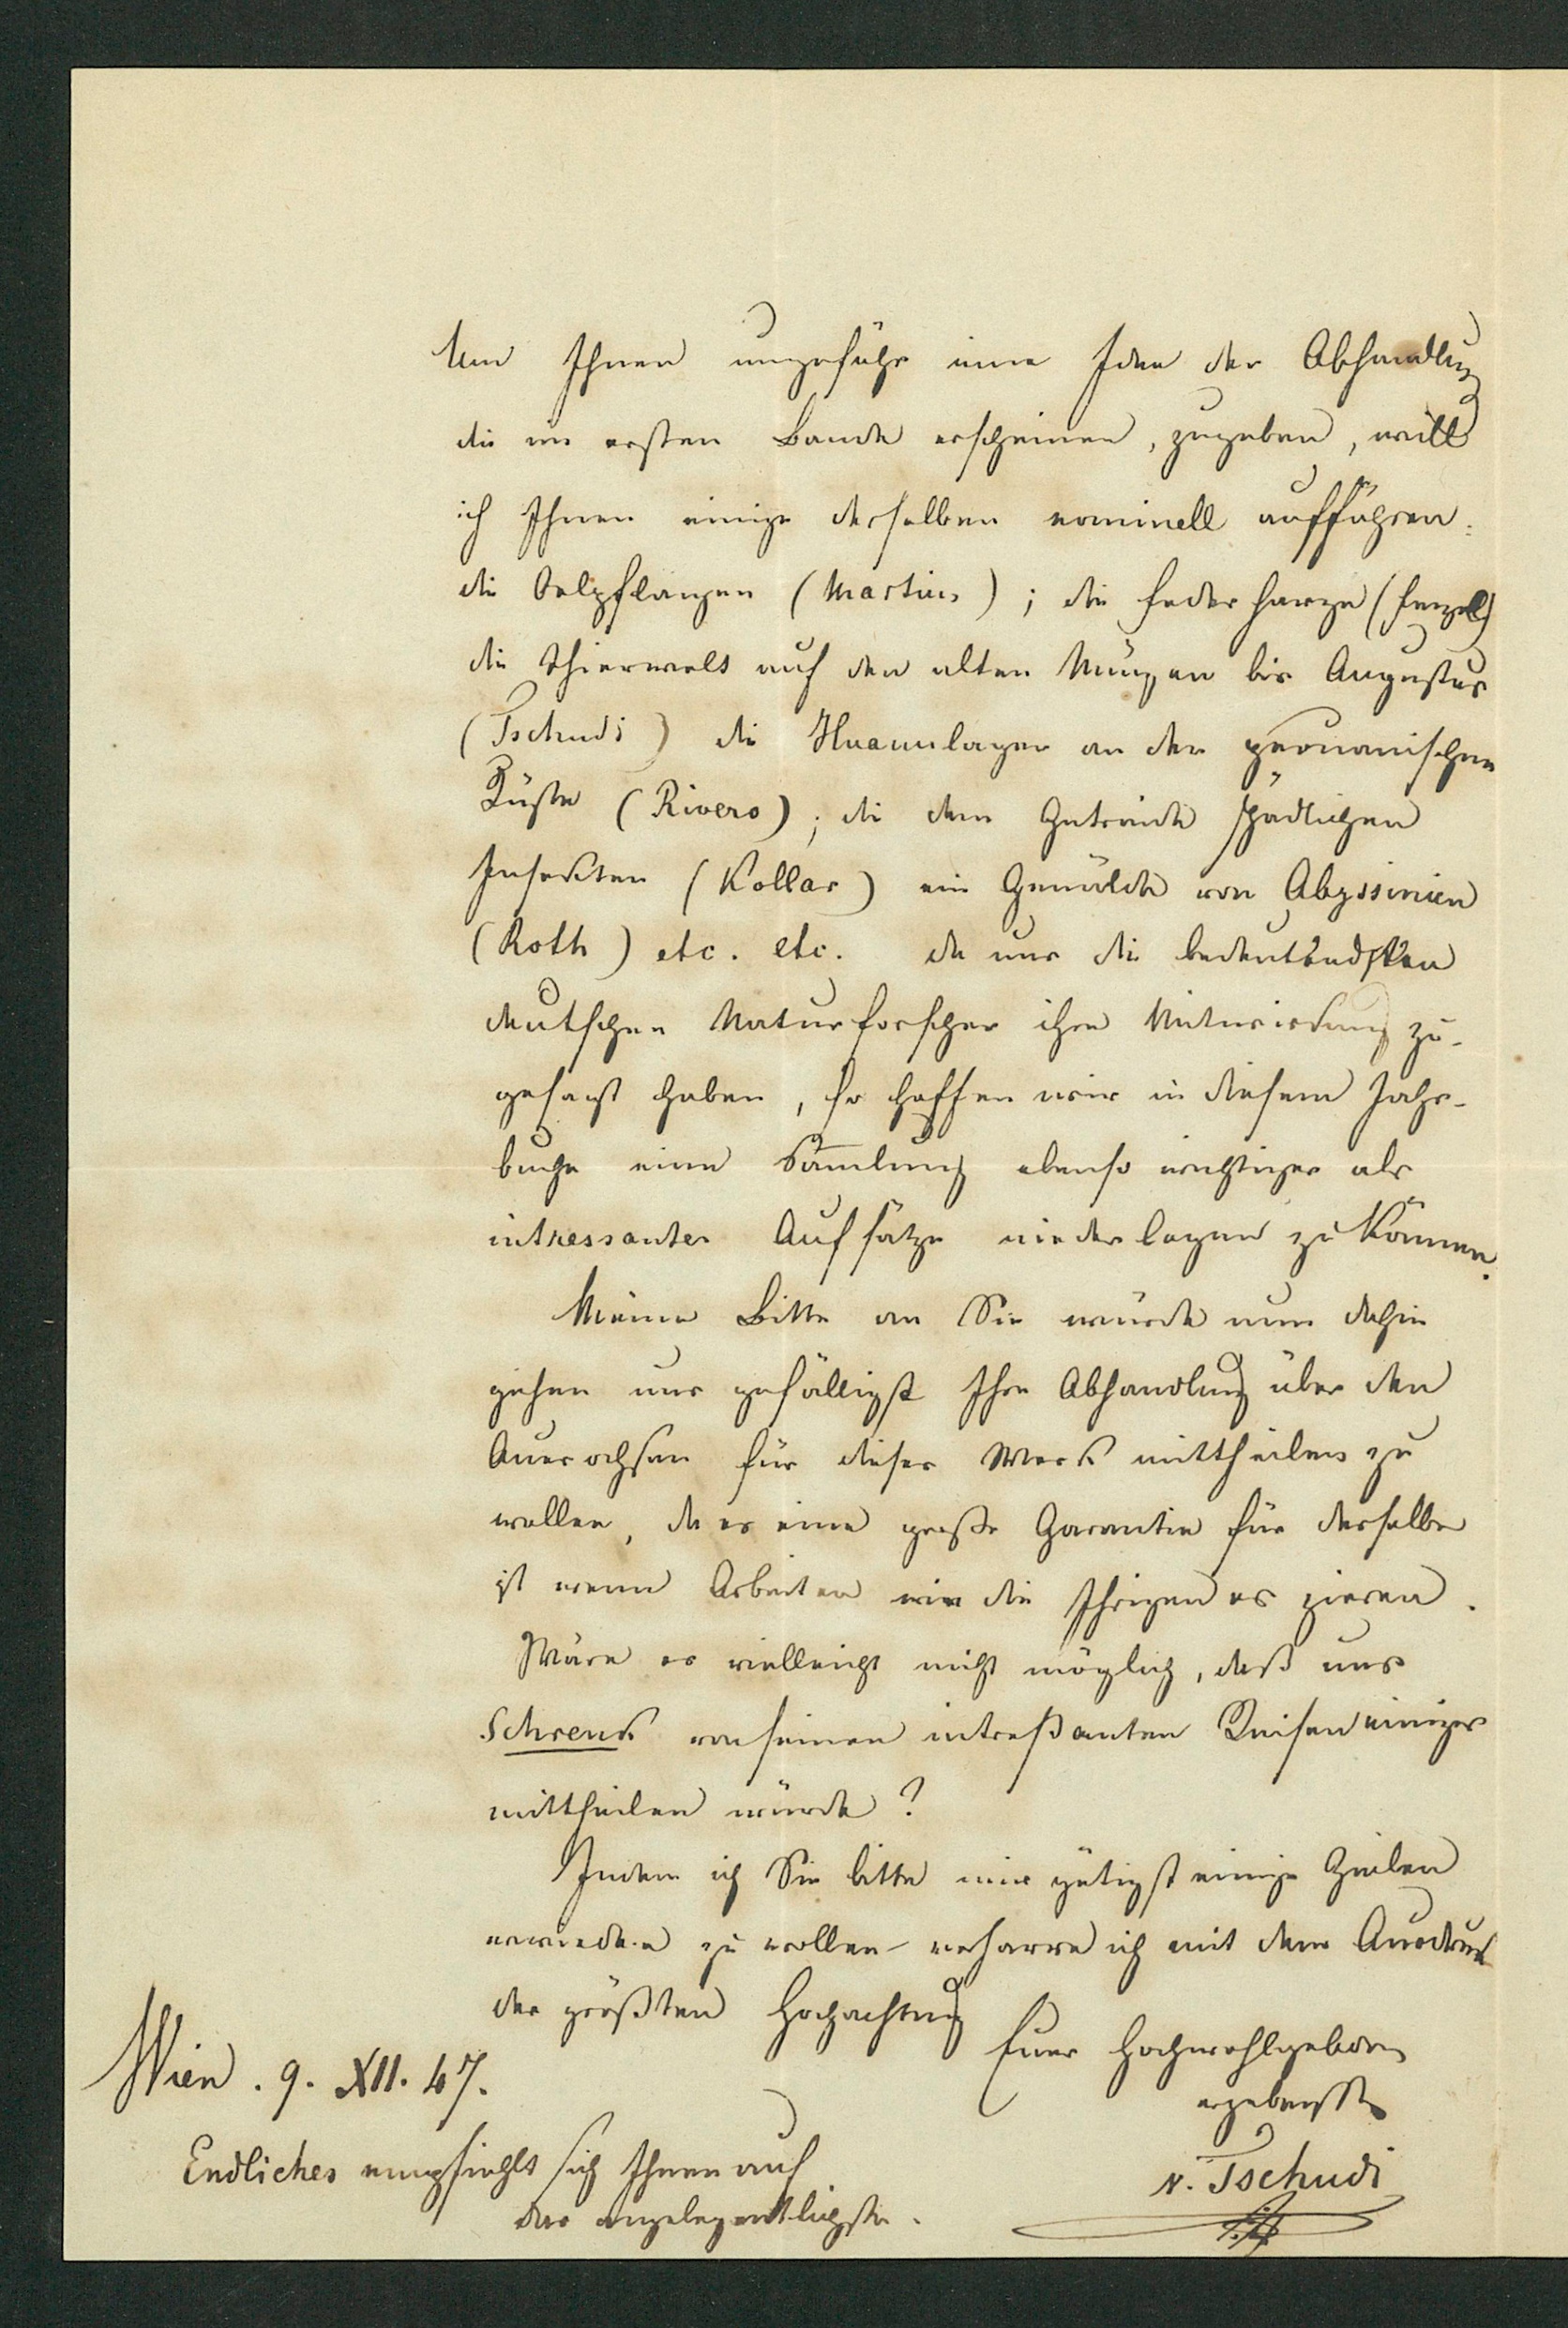 Um Ihnen ungefähr eine Idee der Abhandlung
die im ersten Bande erscheinen, zugeben, will
ich Ihnen einige derselben nominell aufführen:
die Oelpflanzen (Martius); die Federharze (Fenzel)
die Thierwelt auf den alten Münzen bis Augustus
(Tschudi) die Huanulager an der peruanischen
Küste (Rivero); die dem Getreide schädlichen
Insekten (Kollar) ein Gemälde von Abyssinien
(Roth) etc. etc. da uns die bedeutendsten
deutschen Naturforscher ihre Mitwirkung zu-
gesagt haben, so hoffen wir in diesem Jahr-
buche eine Sam̅lung ebenso wichtiger als
intressanter Aufsätze niederlegen zu können.
Meine Bitte an Sie würde nun dahin
gehen uns gefälligst Ihre Abhandlung über den
Auerochsen für dieses Werk mittheilen zu
wollen, da es eine große Garantie für dasselbe
ist wenn Arbeiten wie die Ihrigen es zieren.
Wäre es vielleicht nicht möglich, daß uns
Schrenk von seinen intreßanten Reisen einiges
mittheilen würde?
Indem ich Sie bitte mir gütigst einige Zeilen
erwiedern zu wollen verharre ich mit dem Ausdruck
der größten Hochachtung
Euer Hochwohlgeboren
ergebenster
v. Tschudi
Wien. 9. XII. 47.
Endlicher empfiehlt sich Ihnen auf
das angelegentlichste.